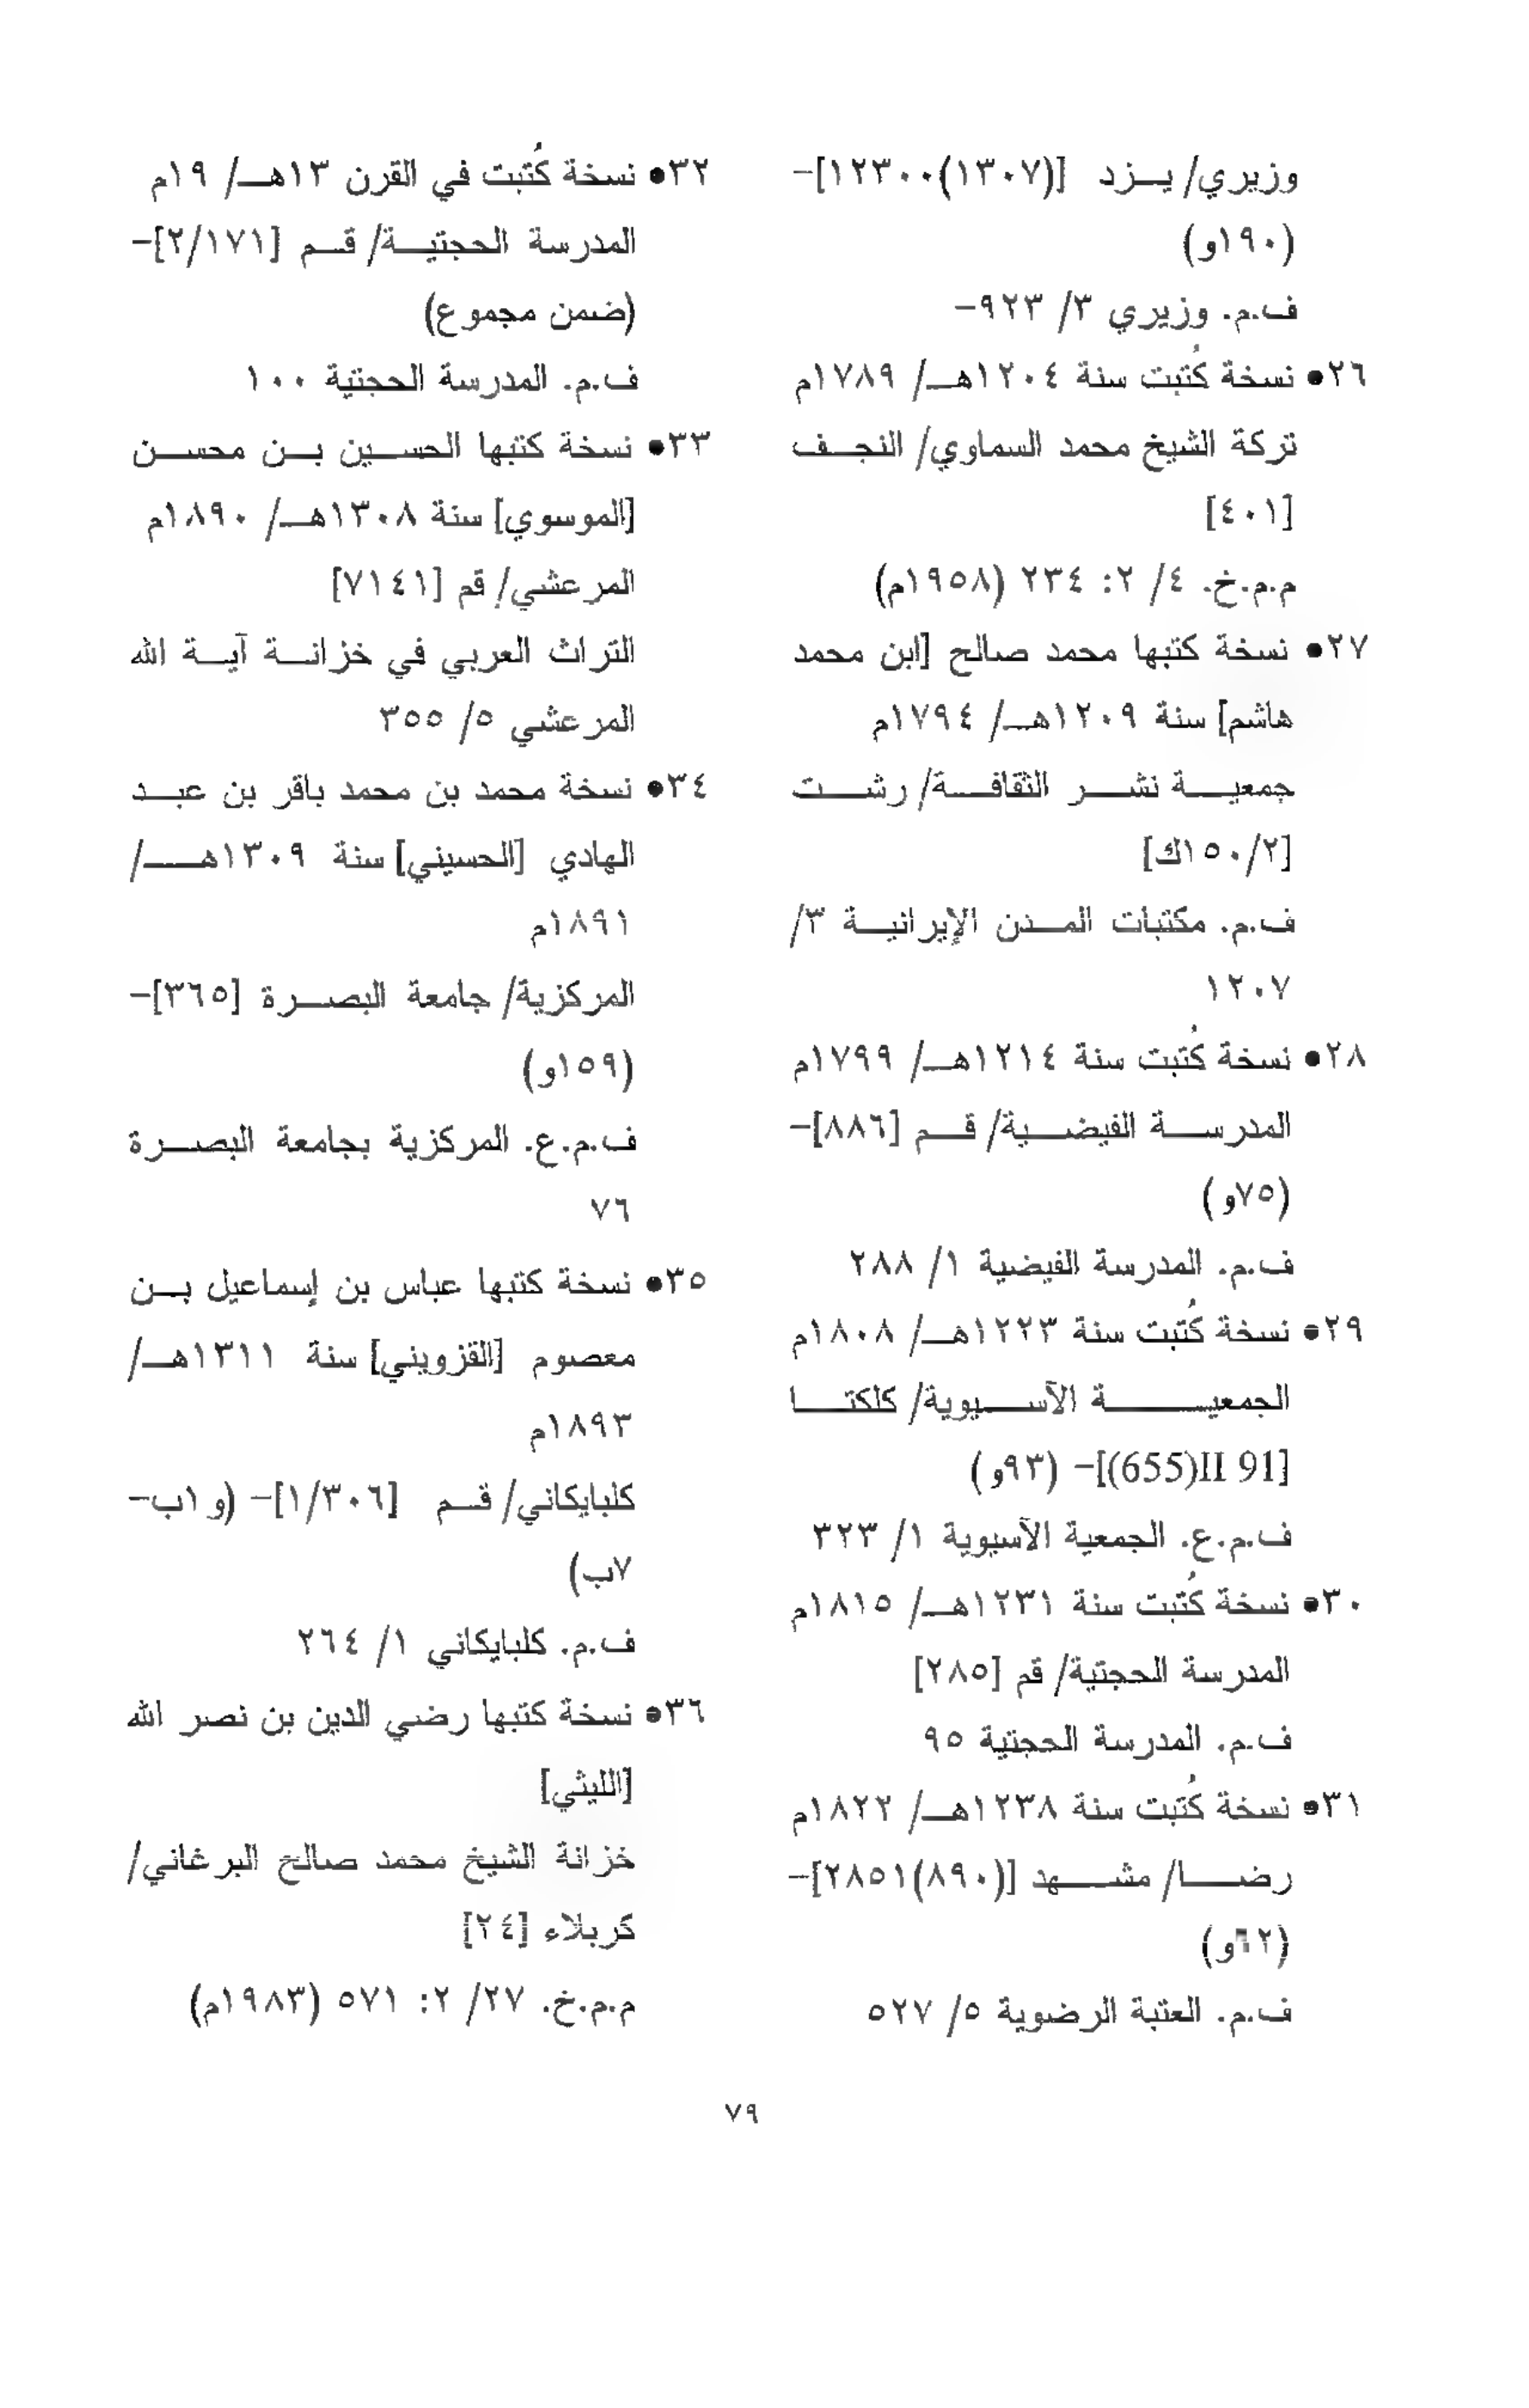 وزيري/ يزد [(١٣٠٧)١٢٣٠٠]-
(١٩٠و)
ف.م. وزيري ٣/ ٩٢٣-
٢٦• نسخة كُتبت سنة ١٢٠٤هـ/ ١٧٨٩م
تركة الشيخ محمد السماوي/ النجف
[٤٠١]
م.م.خ. ٤/ ٢: ٢٣٤ (١٩٥٨م)
٢٧• نسخة كتبها محمد صالح [ابن محمد
هاشم] سنة ١٢٠٩هـ/ ١٧٩٤م
جمعية نشر الثقافة/ رشت
[١٥٠/٢ك]
ف.م. مكتبات المدن الإيرانية ٣/
١٢٠٧
٢٨• نسخة كُتبت سنة ١٢١٤هـ/ ١٧٩٩م
المدرسة الفيضية/ قم [٨٨٦]-
(٧٥و)
ف.م. المدرسة الفيضية ١/ ٢٨٨
٢٩• نسخة كُتبت سنة ١٢٢٣هـ/ ١٨٠٨م
الجمعية الآسيوية/ كلكتا
[(655)II 91]- (٩٣و)
ف.م.ع. الجمعية الآسيوية ١/ ٣٢٣
٣٠• نسخة كُتبت سنة ١٢٣١هـ/ ١٨١٥م
المدرسة الحجتية/ قم [٢٨٥]
ف.م. المدرسة الحجتية ٩٥
٣١• نسخة كُتبت سنة ١٢٣٨هـ/ ١٨٢٢م
رضا/ مشهد [(٨٩٠)٢٨٥١]-
(٦٢و)
ف.م. العتبة الرضوية ٥/ ٥٢٧
٣٢• نسخة كُتبت في القرن ١٣هـ/ ١٩م
المدرسة الحجتية/ قم [٢/١٧١]-
(ضمن مجموع)
ف.م. المدرسة الحجتية ١٠٠
٣٣• نسخة كتبها الحسين بن محسن
[الموسوي] سنة ١٣٠٨هـ/ ١٨٩٠م
المرعشي/ قم [٧١٤١]
التراث العربي في خزانة آية الله
المرعشي ٥/ ٣٥٥
٣٤• نسخة محمد بن محمد باقر بن عبد
الهادي [الحسيني] سنة ١٣٠٩هـ/
١٨٩١م
المركزية/ جامعة البصرة [٣٦٥]-
(١٥٩و)
ف.م.ع. المركزية بجامعة البصرة
٧٦
٣٥• نسخة كتبها عباس بن إسماعيل بن
معصوم [القزويني] سنة ١٣١١هـ/
١٨٩٣م
كلبايكاني/ قم [١/٣٠٦]- (و ١ب-
٧ب)
ف.م. كلبايكاني ١/ ٢٦٤
٣٦• نسخة كتبها رضي الدين بن نصر الله
[الليثي]
خزانة الشيخ محمد صالح البرغاني/
كربلاء [٢٤]
م.م.خ. ٢٧/ ٢: ٥٧١ (١٩٨٣م)
٧٩